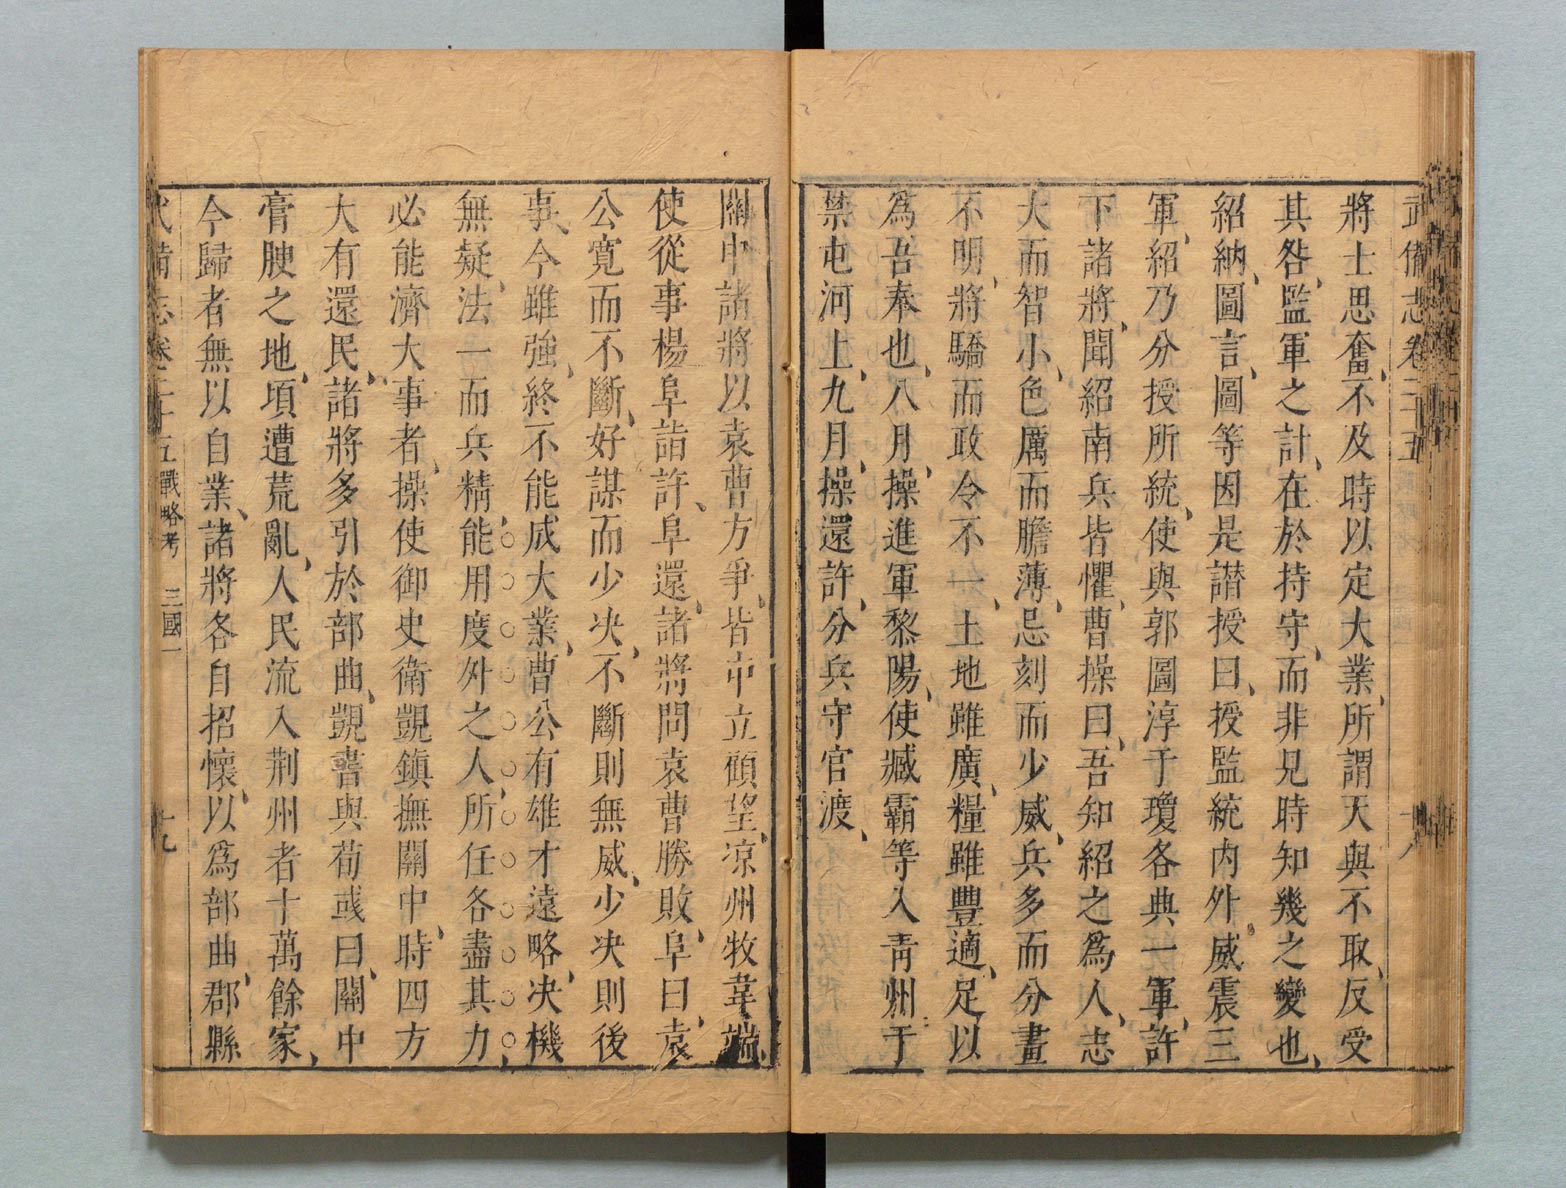 武備志卷二十五 十八
將士思奮不及時以定大業所謂天與不取反受
其咎監軍之計在於持守而非見時知幾之變也
紹納圖言圖等因是譖授曰授監統內外威震三
軍紹乃分授所統使與郭圖淳于瓊各典一軍許
下諸將聞紹南兵皆懼曹操曰吾知紹之爲人志
大而智小色厲而膽薄忌刻而少威兵多而分畫
不明將驕而政令不一土地雖廣糧雖豐適足以
爲吾奉也八月操進軍黎陽使臧霸等入靑州于
禁屯河上九月操還許分兵守官渡
關中諸將以袁曹方爭皆中立顧望凉州牧韋端
使從事楊阜詣許阜還諸將問袁曹勝敗阜曰袁
公寬而不斷好謀而少决不斷則無威少决則後
事今雖強終不能成大業曹公有雄才遠略决機
無疑法一而兵精能用度外之人所任各盡其力
必能濟大事者操使御史衛覬鎮撫關中時四方
大有還民諸將多引於部曲覬書與荀彧曰關中
膏腴之地頃遭荒亂人民流入荆州者十萬餘家
今歸者無以自業諸將各自招懷以爲部曲郡縣
武備志卷二十五 戰略考 三國一 十九